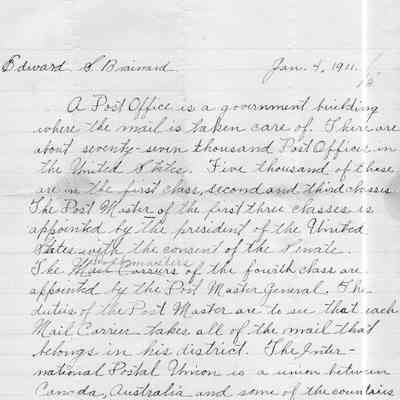 Edward S. Brainard. Jan. 4, 1911.
A Post Office is a government building
where the mail is taken care of. There are
about seventy-seven thousand Post Offices in
the United States. Five thousand of those
are in the first class, second and third classes.
The Post Master of the first three classes is
appointed by the president of the United
States with the consent of the Senate.
The Mail Carriers of the fourth class are
appointed by the Post Master General. The
duties of the Post Master are to see that each
Mail Carrier takes all of the mail that
belongs in his district. The Inter-
national Postal Union is a union between
Canada, Australia and some of the countries